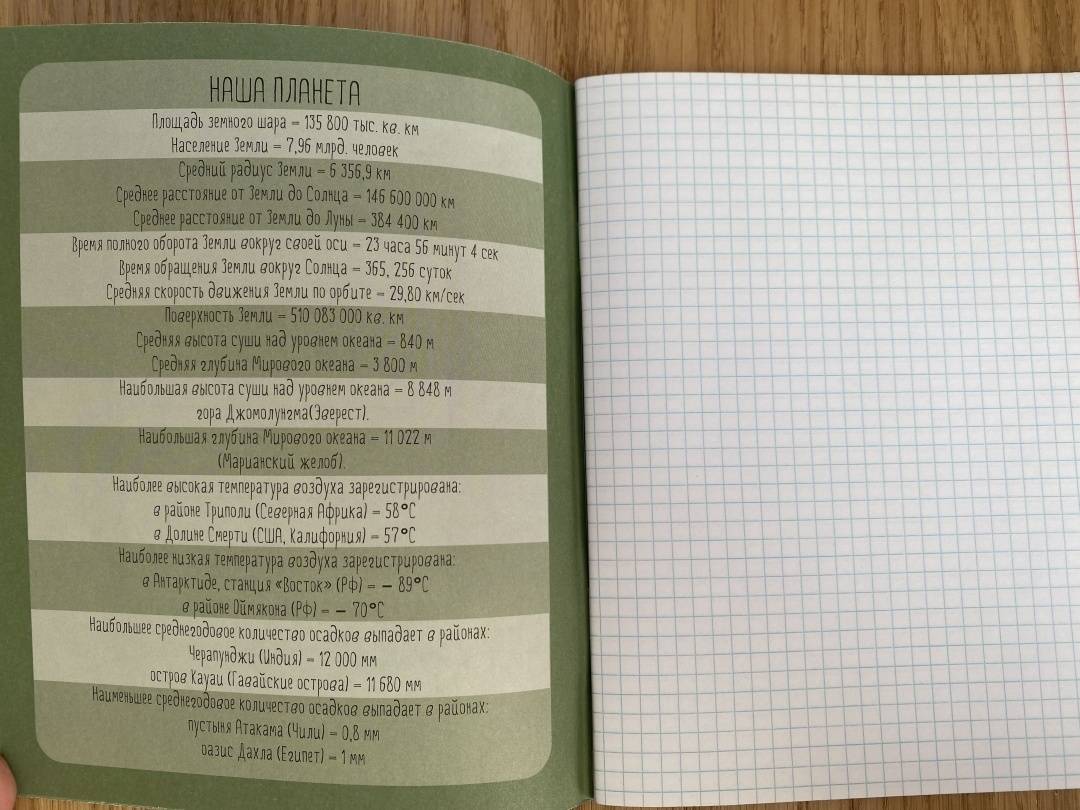 НАША ПЛАНЕТА
Площадь земного шара = 135 800 тыс. кв. км
Население Земли = 7,96 млрд. человек
Средний радиус Земли = 6 356,9 км
Среднее расстояние от Земли до Солнца = 146 600 000 км
Среднее расстояние от Земли до Луны = 384 400 км
Время полного оборота Земли вокруг своей оси = 23 часа 56 минут 4 сек
Время обращения Земли вокруг Солнца = 365, 256 суток
Средняя скорость движения Земли по орбите = 29,80 км/сек
Поверхность Земли = 510 083 000 кв. км
Средняя высота суши над уровнем океана = 840 м
Средняя глубина Мирового океана = 3 800 м
Наибольшая высота суши над уровнем океана = 8 848 м
гора Джомолунгма(Эверест).
Наибольшая глубина Мирового океана = 11 022 м
(Марианский желоб).
Наиболее высокая температура воздуха зарегистрирована:
в районе Триполи (Северная Африка) = 58°С
в Долине Смерти (США, Калифорния) = 57°С
Наиболее низкая температура воздуха зарегистрирована:
в Антарктиде, станция «Восток» (РФ) = – 89°С
в районе Оймякона (РФ) = – 70°С
Наибольшее среднегодовое количество осадков выпадает в районах:
Черапунджи (Индия) = 12 000 мм
остров Кауаи (Гавайские острова) = 11 680 мм
Наименьшее среднегодовое количество осадков выпадает в районах:
пустыня Атакама (Чили) = 0,8 мм
оазис Дахла (Египет) = 1 мм